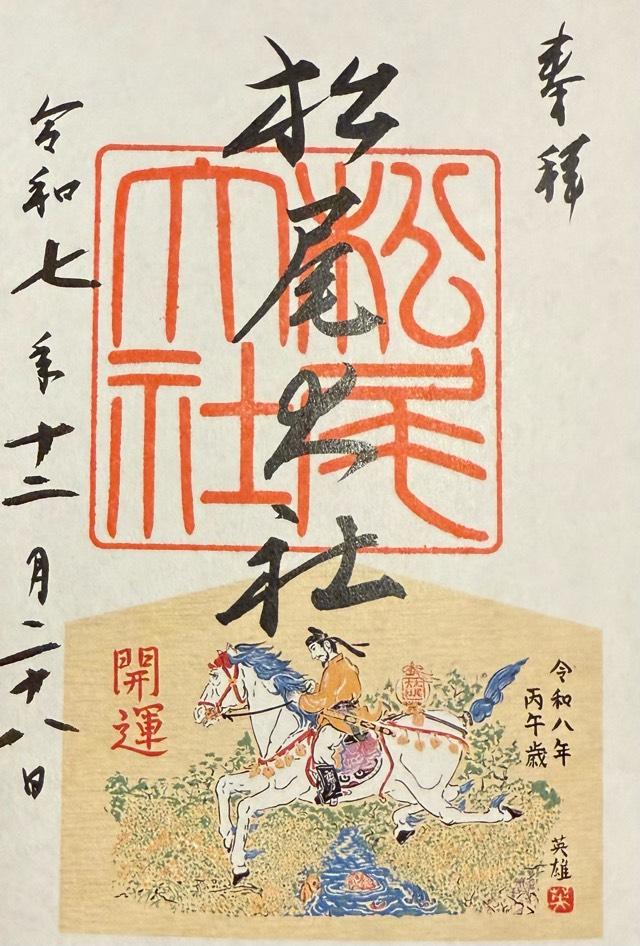 奉拝
松尾大社
松尾大社
令和七年十二月二十八日
開運
令和八年
丙午歳
英雄
英